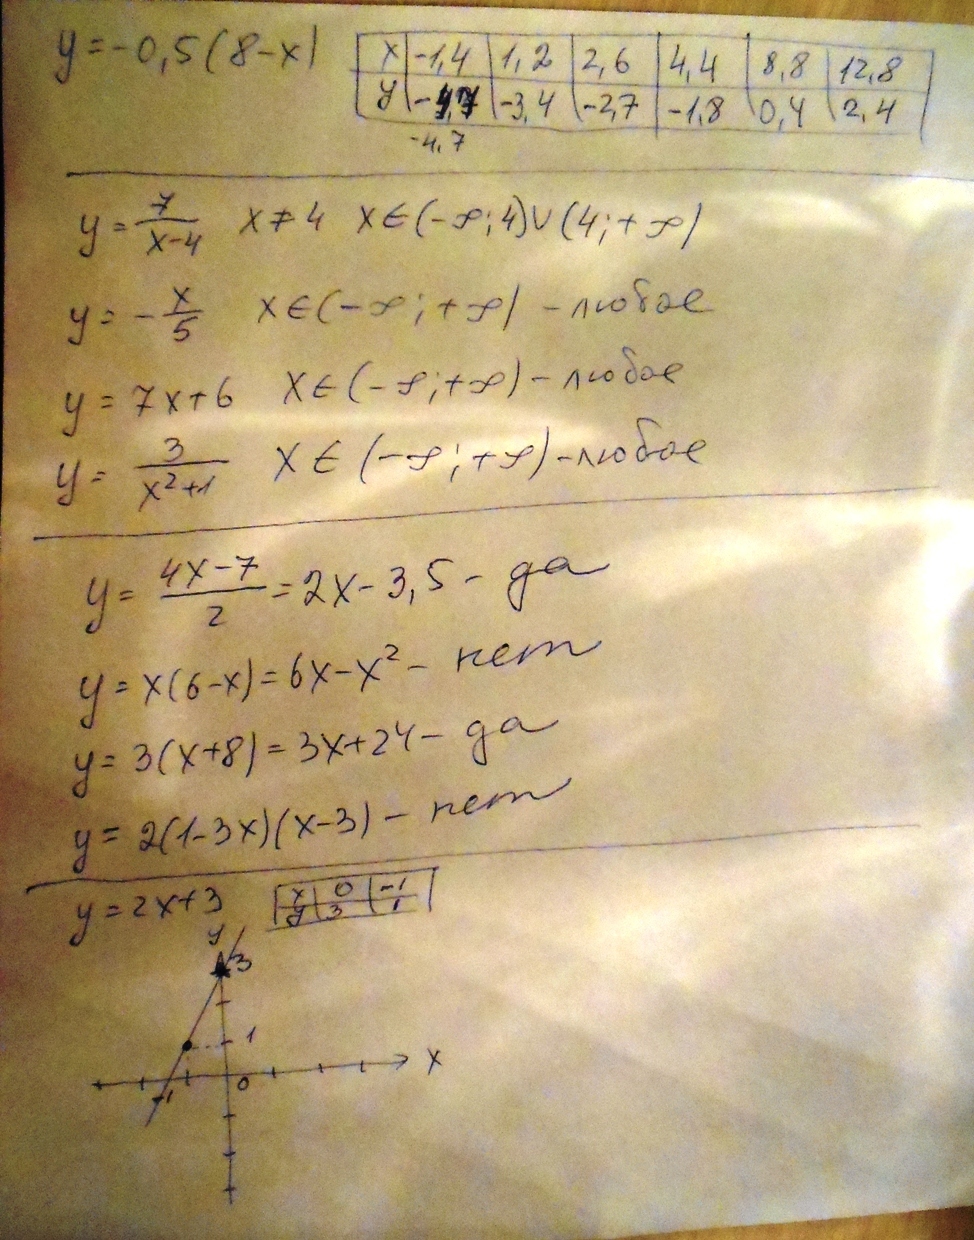 y = -0,5(8-x)
x | -1,4 | 1,2 | 2,6 | 4,4 | 8,8 | 12,8
y | -3,4 | -2,7 | -1,8 | 0,4 | 2,4
-4,7
y = 7/(x-4) x ≠ 4 x ∈ (-∞; 4) ∪ (4; +∞)
y = -x/5 x ∈ (-∞; +∞) - любое
y = 7x+6 x ∈ (-∞; +∞) - любое
y = 3/(x²+1) x ∈ (-∞; +∞) - любое
y = (4x-7)/2 = 2x-3,5 - да
y = x(6-x) = 6x-x² - нет
y = 3(x+8) = 3x+24 - да
y = 2(1-3x)(x-3) - нет
y = 2x+3
x | 0 | -1
y | 3 | 1
y
3
1
x
-1
0